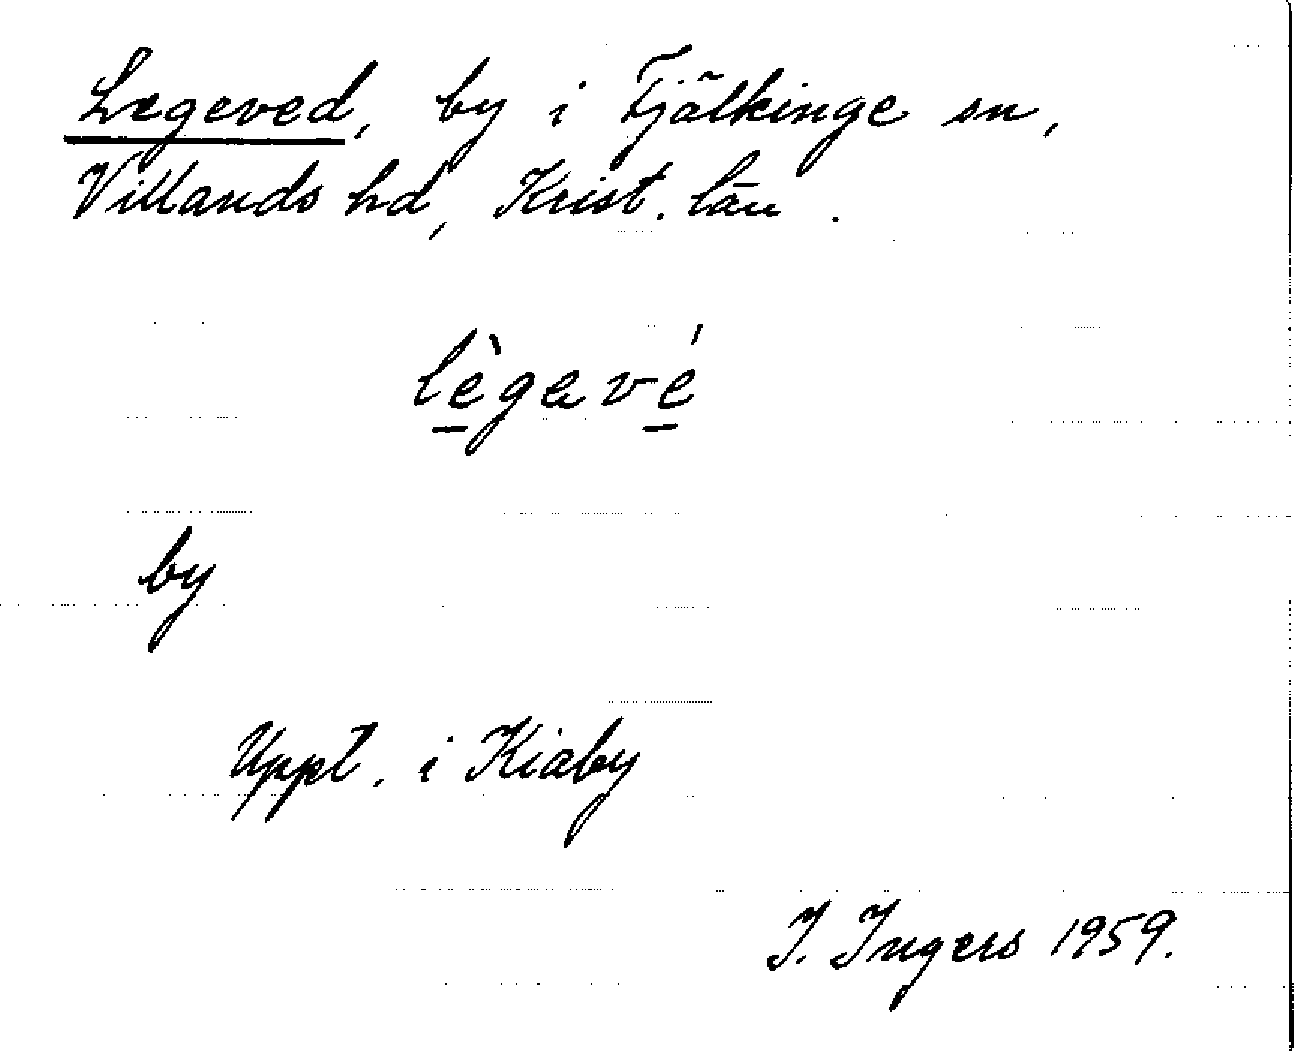 Legeved, by i Fjälkinge sn,
Villands hd, Krist. län.
lègavé
by
Uppt. i Kiaby
I. Ingers 1959.